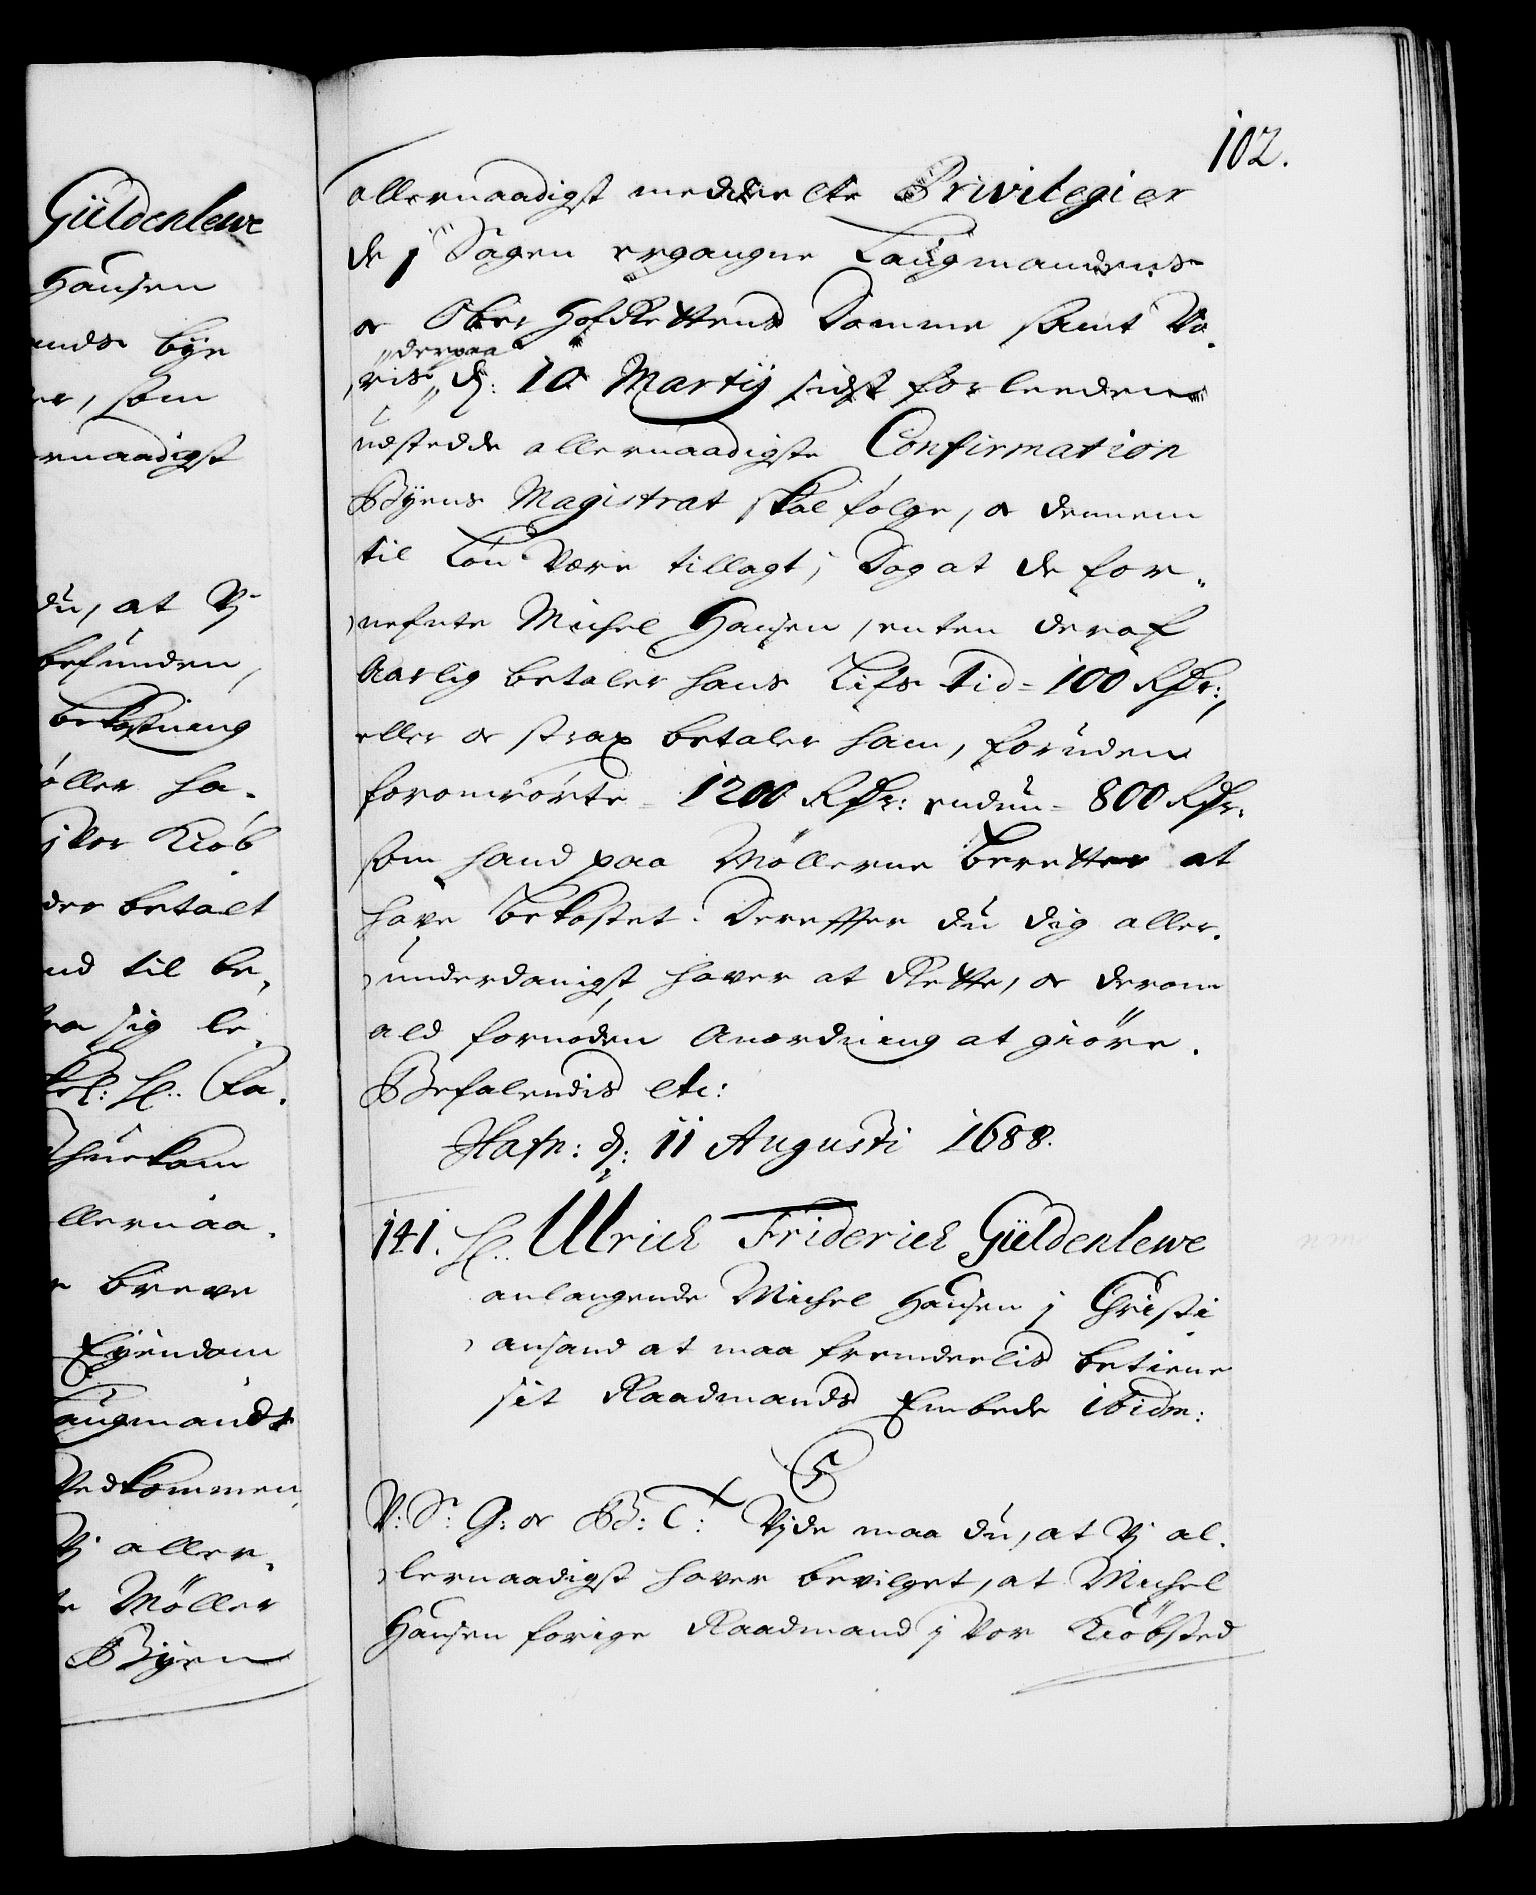 Güldenlewe
Hansen
bÿe
som
ernaadigst
du, at Vj
befunden,
bekostning
öller ha-
j Vor Kiöb
der betalt
nd til be-
sig le-
llernaa-
breve
Eÿendom
augmands
Vedkommen
Vj aller-
Möller
Bÿen
102.
allernaadigst meddeelte Privilegier
de j Sagen ergangne Laugmandens
og Ober Hof Rettens Domme samt Vo-
deris derpaa
ris d: 10 Martÿ sidst forleeden
udstedde allernaadigste Confirmation
Bÿens Magistrat skal følge, og dennem
til Lön være tillagt, Dog at de for-
nefnte Michel Hansen, enten deraf
Aarlig betaler hans Lifs Tid = 100 Rdr:,
eller og strax betaler ham, foruden
foromrörte = 1200 Rdr: endnu = 800 Rdr:
som hand paa Möllerne beretter at
have bekostet. Derefter du dig aller-
underdanigst haver at Rette, og derom
ald fornöden Anordning at giöre.
Befalendis etc:
Hafn: d: 11 Augusti 1688.
141. H: Ulrich Friderich Güldenlewe
anlangende Michel Hansen j Christi
ansand at maa fremdeelis betiene
sit Raadmands Embede ibidm:
C 5
V: S: G: og B: T: Vjde maa du, at Vj al-
lernaadigst haver bevilget, at Michel
Hansen forige Raadmand j Vor Kiöbsted